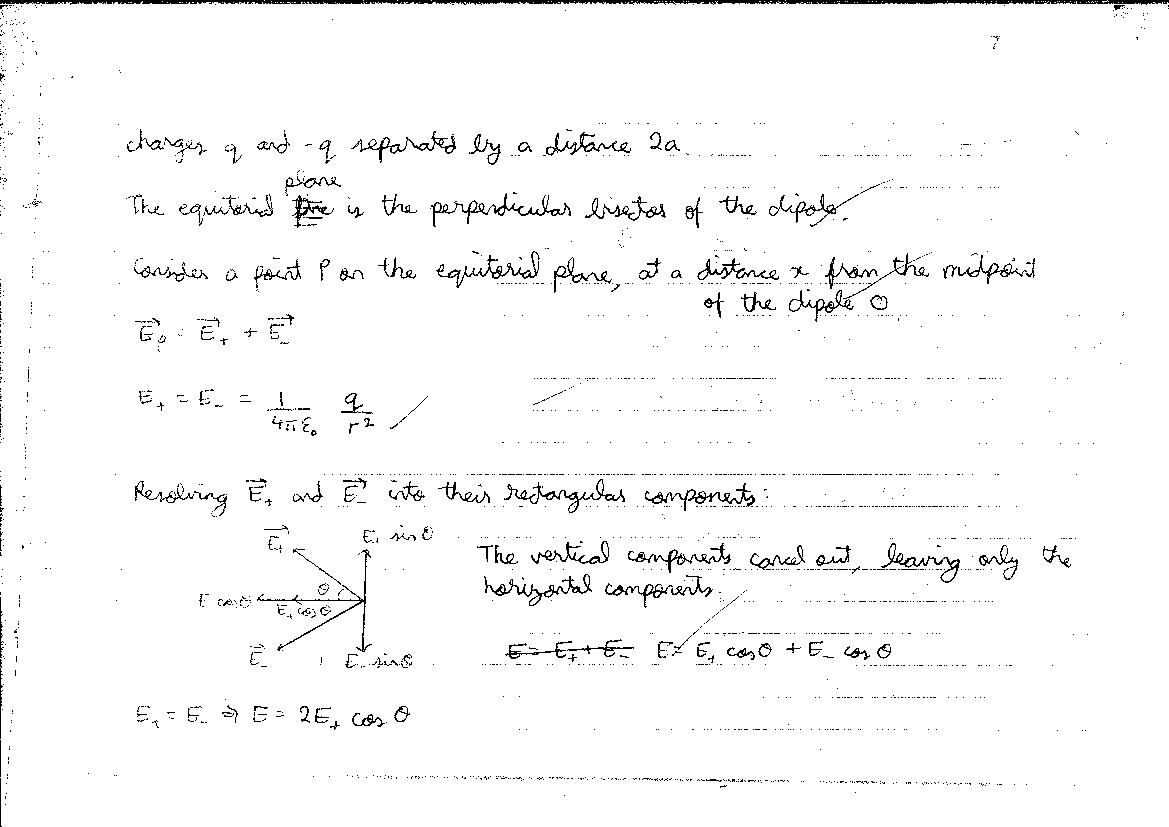 7
charges q and -q separated by a distance 2a
plane
The equitorial is the perpendicular bisector of the dipole.
Consider a point P on the equitorial plane, at a distance x from the midpoint
of the dipole O
E⃗ₚ = E⃗₊ + E⃗₋
E₊ = E₋ = 1/4πε₀ q/r²
Resolving E⃗₊ and E⃗₋ into their rectangular components:
E⃗₊
E₊ sinθ
The vertical components cancel out, leaving only the
horizontal components.
θ
E cosθ
E₊ cosθ
E⃗₋
E₋ sinθ
E = E₊ + E₋ E = E₊ cosθ + E₋ cosθ
E₊ = E₋ ⇒ E = 2E₊ cos θ